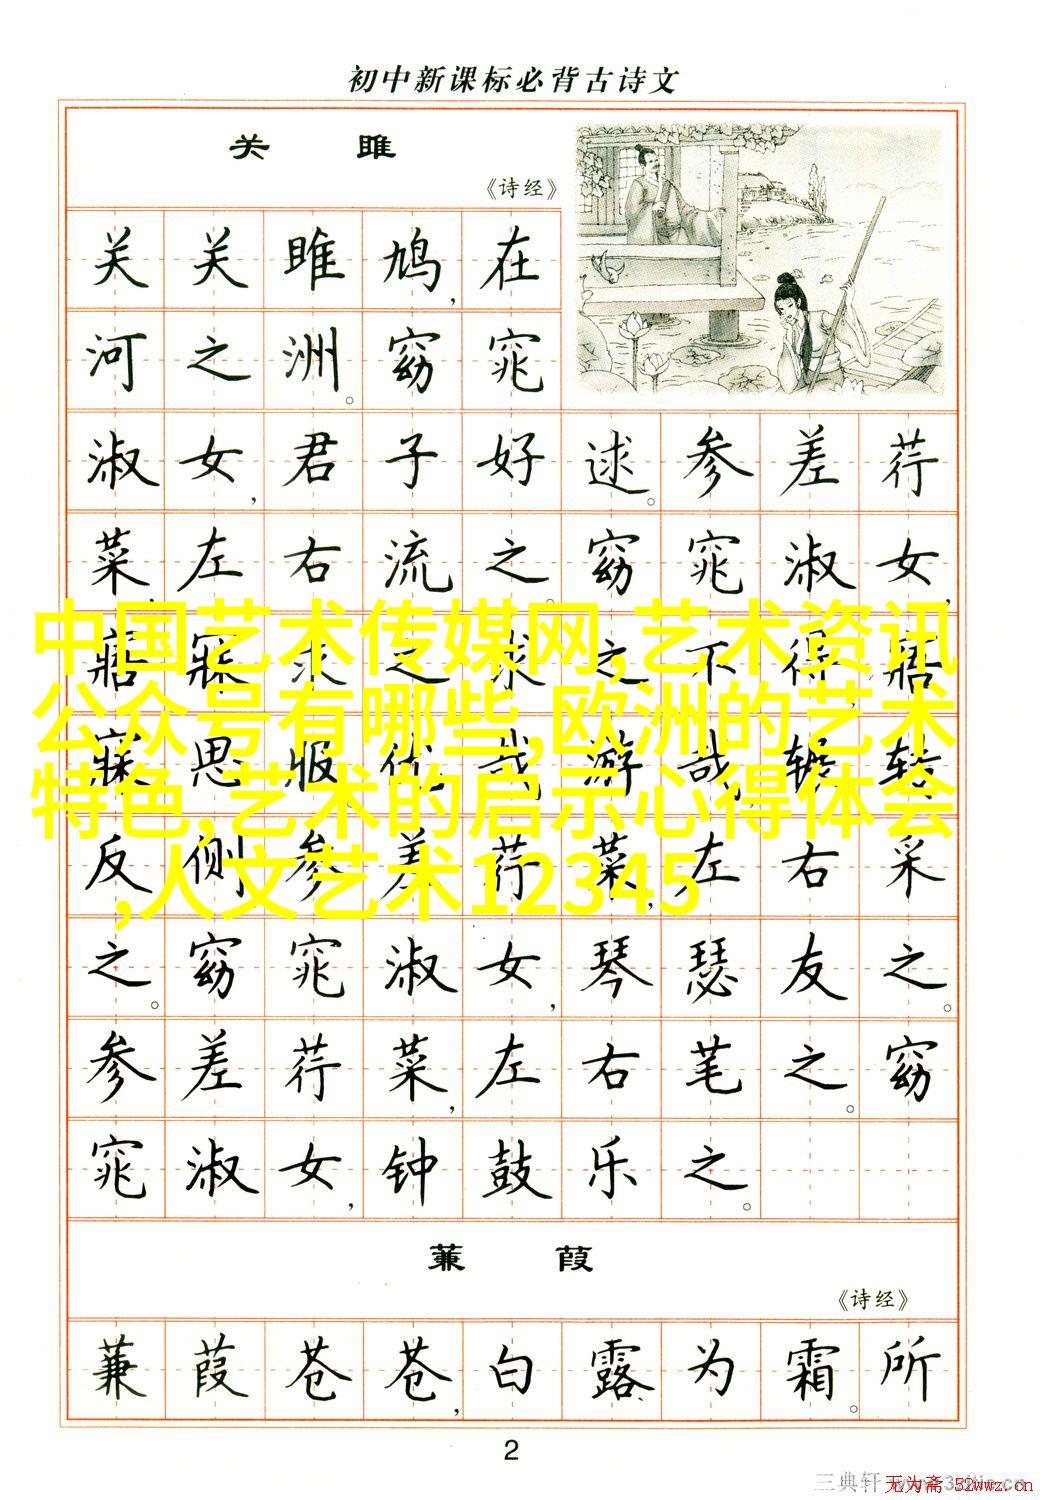 初中新课标必背古诗文
关 雎
《诗经》
关关雎鸠,在
河之洲。窈窕
淑女,君子好逑。参差荇
菜,左右流之。窈窕淑女,
寤寐求之。求之不得,寤
寐思服。优哉游哉,辗转
反侧。参差荇菜,左右采
之。窈窕淑女,琴瑟友之。
参差荇菜,左右芼之。窈
窕淑女,钟鼓乐之。
中国艺术传媒网,艺术资讯
公众号有哪些,欧洲的艺术
特色,艺术的启示心得体会
,人文艺术12345
蒹 葭
《诗经》
蒹葭苍苍,白露为霜。所
2
三典轩
无为斋 52wwz.cn